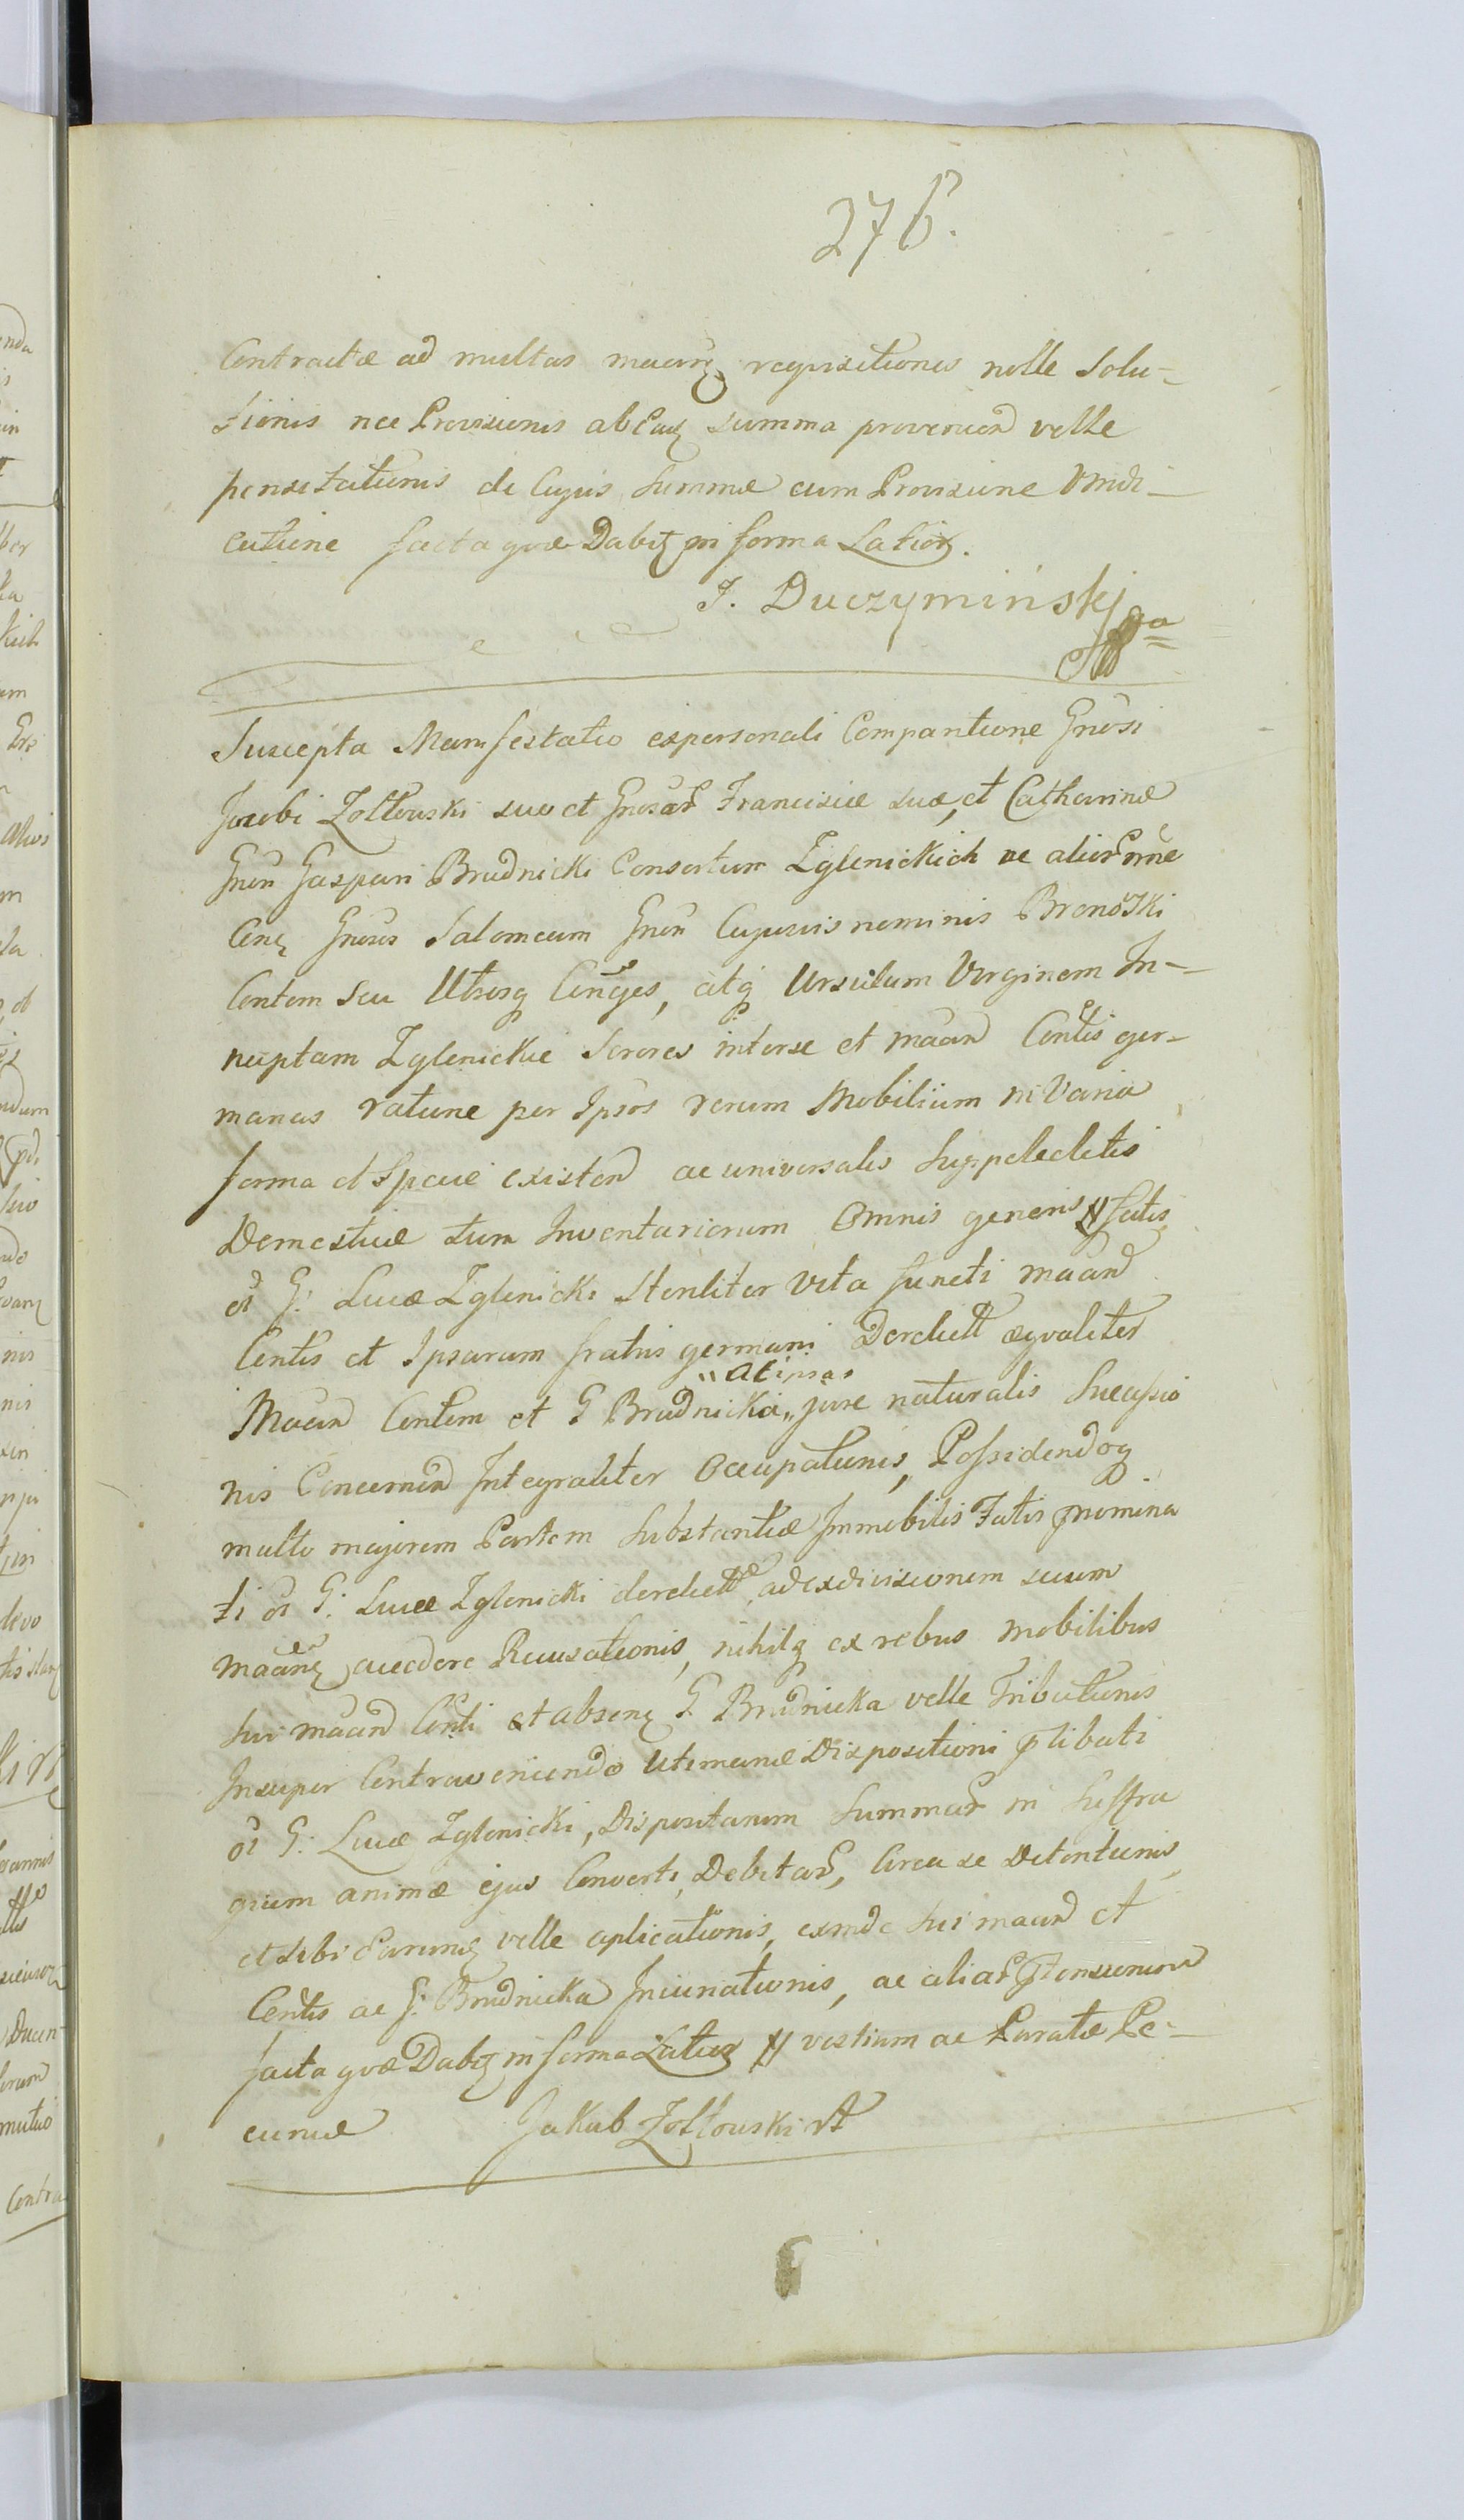 276.
Contractæ ad multas maanẽ requisitiones nolle Solu-
tionis nec Provisionis ab Eadẽ summa provenien velle
pensitationis de Cujus Summæ cum Provisione Vindi-
catione facta quæ Dabit in forma Latiori.
J. Duczyminski mpa
Suscepta Manifestatio ex personali Comparitione Gnosi
Jacobi Zołtowski suo et Gnosar Francisicæ suæ, et Catharinæ
Gnen Gaspari Brudnicki Consortum Zglenickich ac alior nne
Cens Gnosus Salomeam Gnen Cujusvis nominis Bronoski
Contem seu Utrosq Conges, atq Ursulam Virginem In-
nuptam Zglenickie Sorores inter se et maan Centis ger-
manas ratione per Ipsos rerum Mobilium in Varia
forma et Specie existen ac universalis Suppelectetis
Domesticæ tum Inventariorum Omnis generis # fatis
oi G: Lucæ Zglenicki Steriliter Vita functi maan
Centis et Ipsarum fratris germani Derelictt æqvaliter
Maan Centem et G Brudnicka "ac ipsas" jure naturalis Successio
nis Concernen Integraliter Occupationis, Possidendoq
multo majorem Partem Substantiæ Immobilis Fatis pnomina
ti oi G: Lucæ Zglenicki derelictt, ad exdivisionem secum
maanẽ accedere Recusationis, nihilq ex rebus mobilibus
sui maan Centi et absenẽ G Brudnicka velle Tributionis
Insuper Contraveniendo Utimanæ Dispositioni plibati
oi G: Lucæ Zglenicki, Dispositarum Summar in Suffra
gium animæ ejus Converti, Debitar, Circa se Detentionis,
et sibi Earumẽ velle aplicationis, exinde sui maan et
Centis ac G: Brudnicka Injuriationis, ac aliar Ptensionum
facta quæ Dabit in forma Latiori # vestium ac Paratæ Pe-
cuniæ Jakub Zołtowski